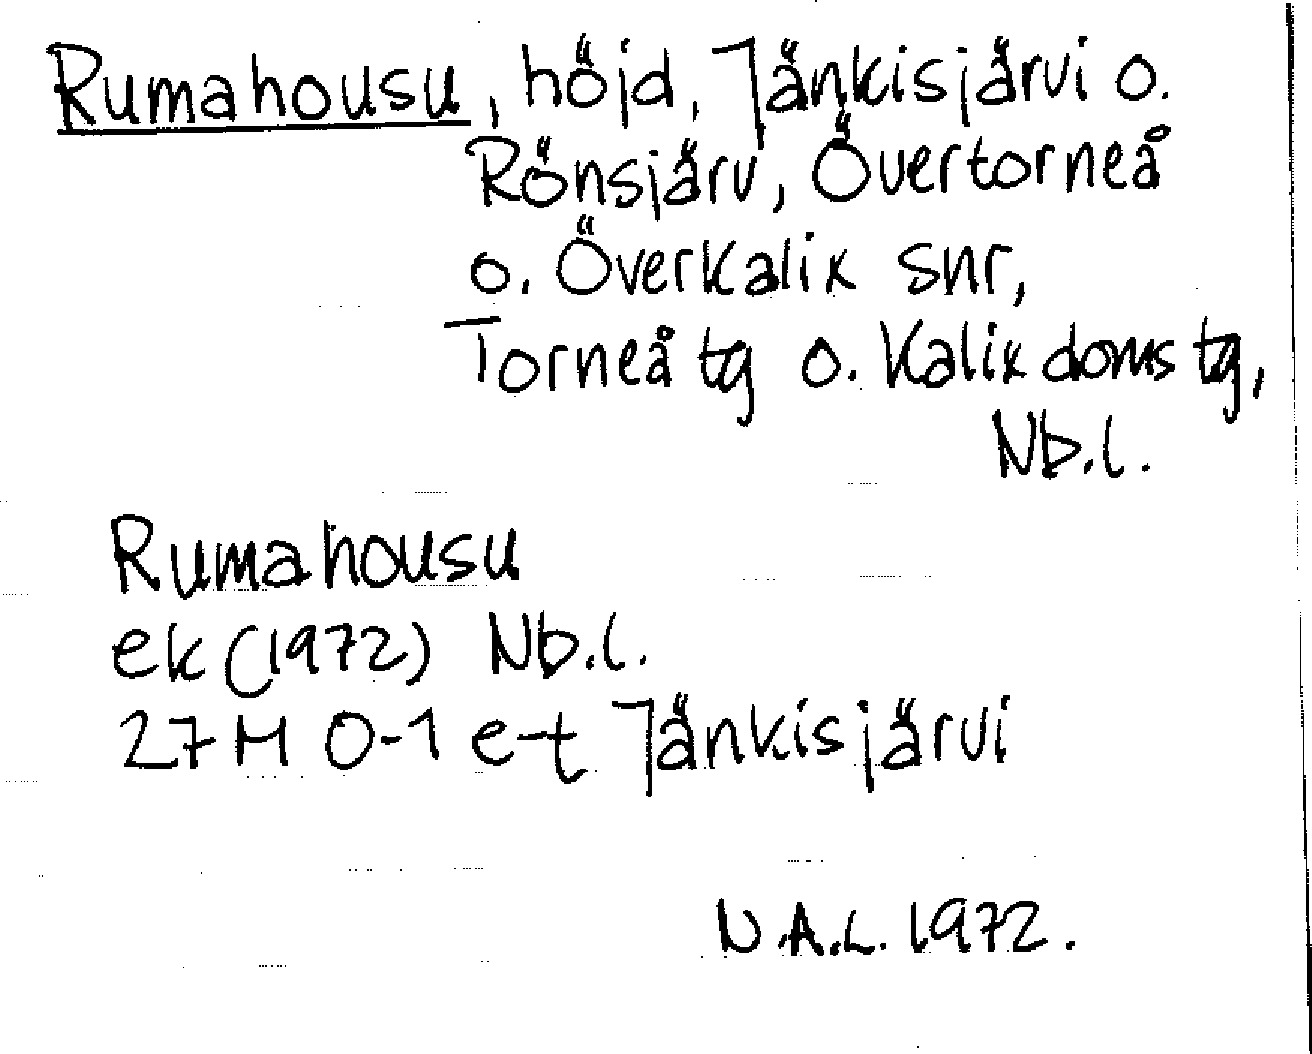 Rumahousu, höjd, Jänkisjärvi o.
Rönsjärv, Övertorneå
o. Överkalix snr,
Torneå tg o. Kalix doms tg,
Nb.l.
Rumahousu
ek (1972) Nb.l.
27M 0-1 e-t Jänkisjärvi
N.A.L. 1972.